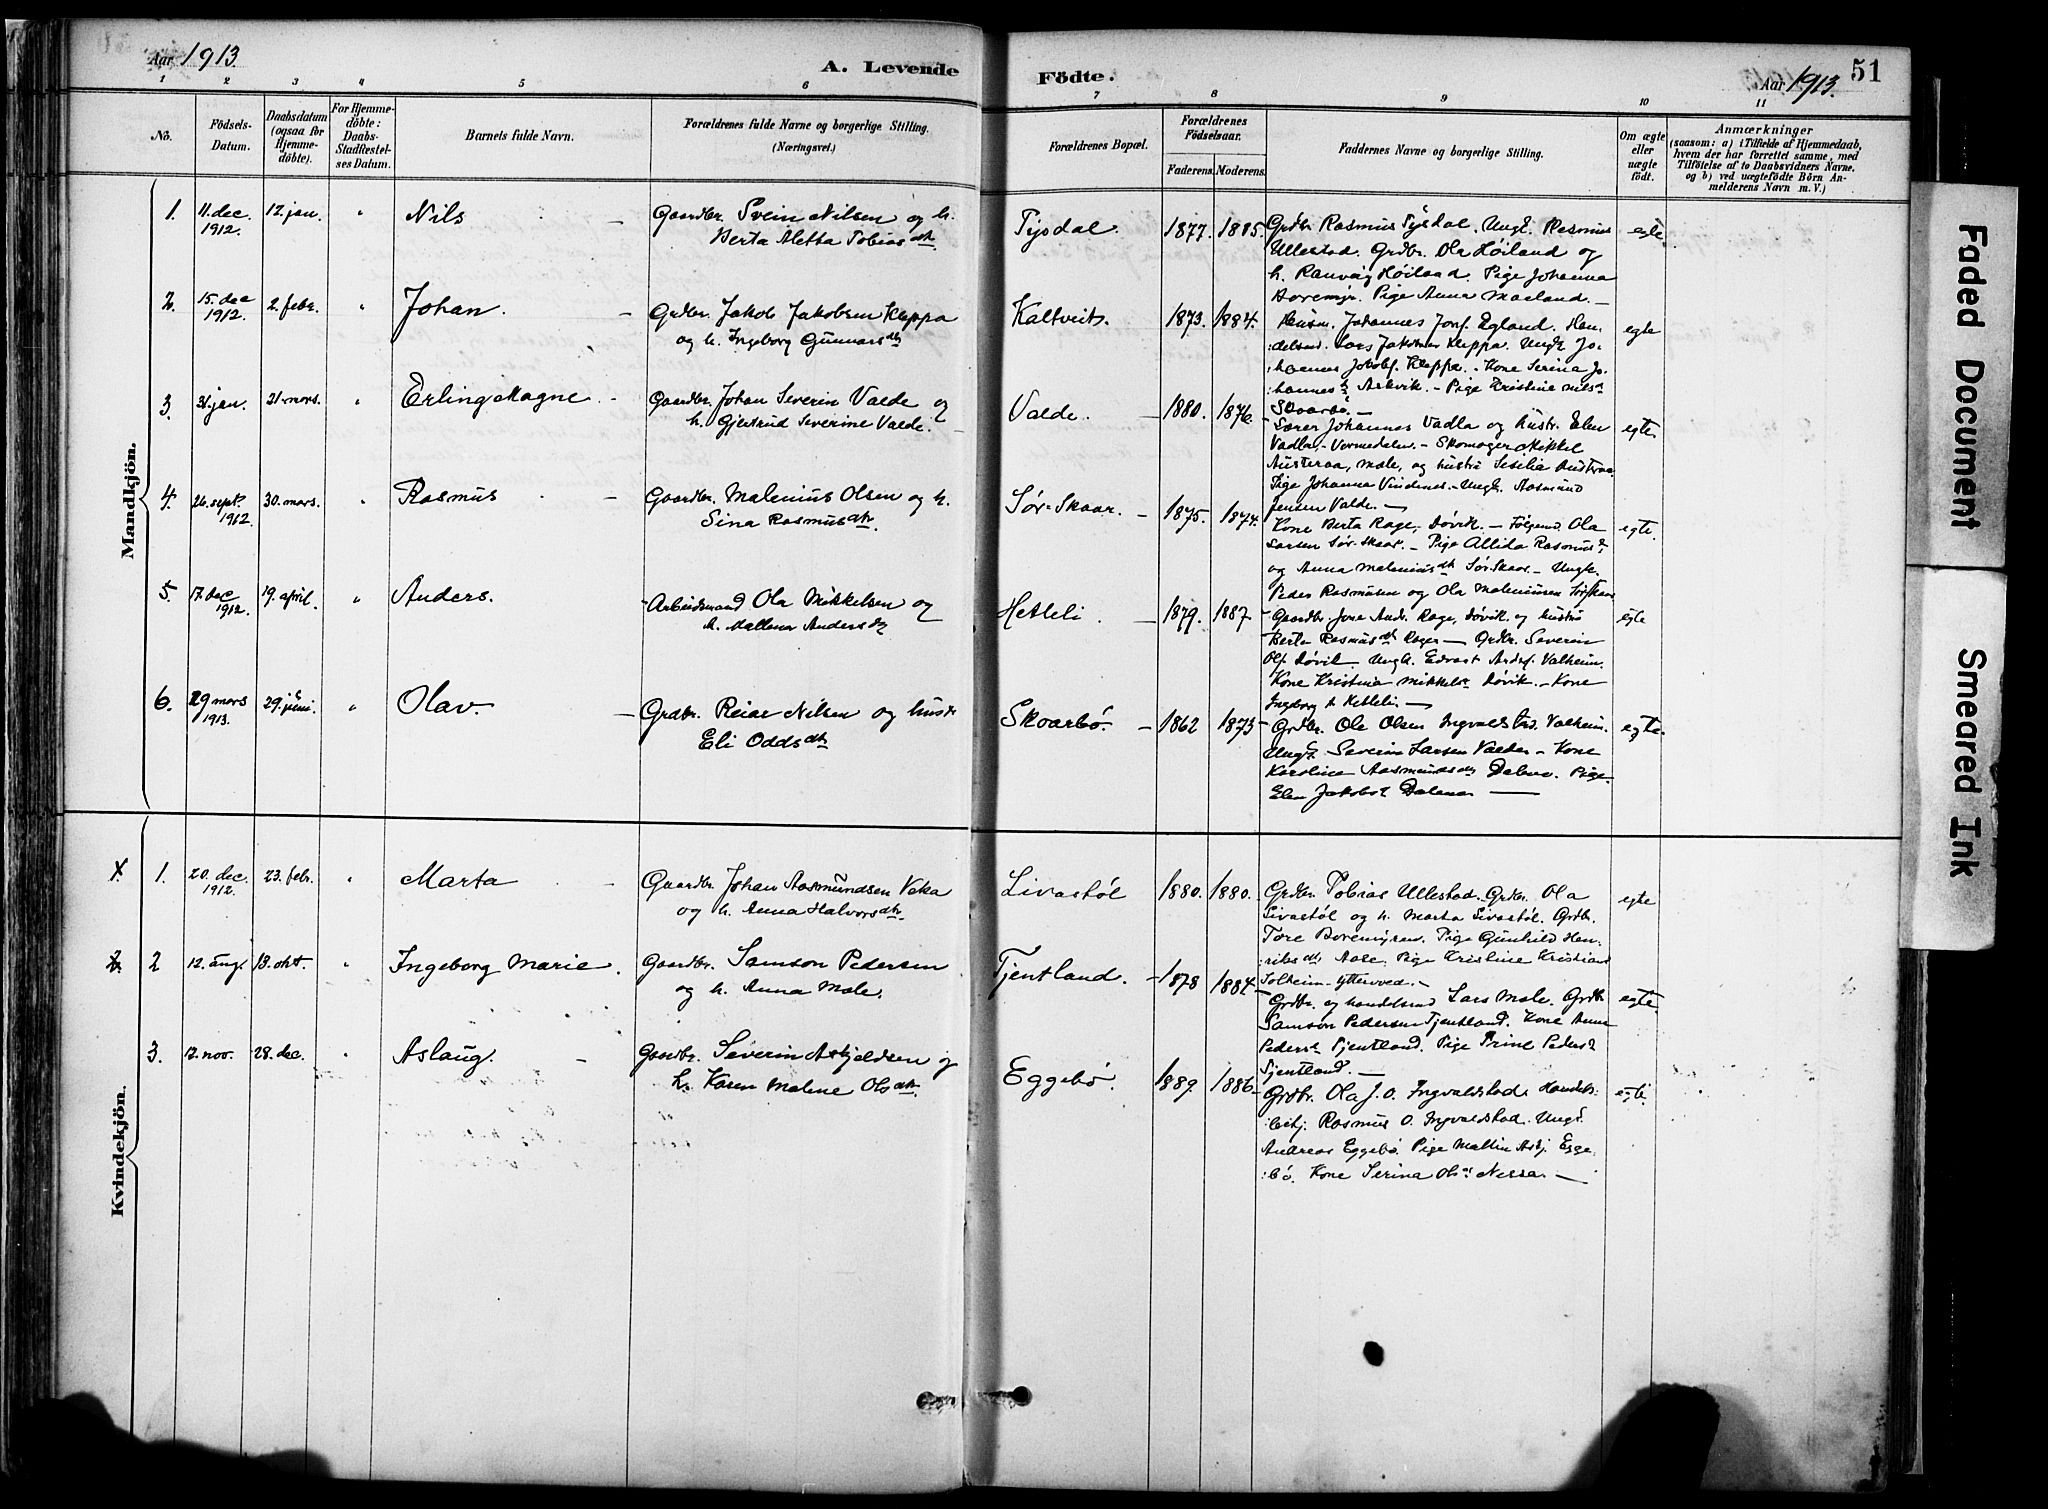 Aar 1913.
A. Levende
Födte.
Aar 1913.
51
1 2 3 4 5 6 7 8 9 10 11
No.
Födsels-Datum.
Daabsdatum (ogsaa for Hjemme-döbte).
For Hjemme-döbte: Daabs-Stadfestel-ses Datum.
Barnets fulde Navn.
Forældrenes fulde Navne og borgerlige Stilling.
(Næringsvei.)
Forældrenes Bopæl.
Forældrenes Födselsaar.
Faderens. Moderens.
Faddernes Navne og borgerlige Stilling.
Om ægte eller uægte födt.
Anmærkninger
(saasom: a) i Tilfælde af Hjemmedaab,
hvem der har forrettet samme, med
Tilföielse af to Daabsvidners Navne.
og b) ved uægtefödte Börn An-
melderens Navn m. V.)
Mandkjön.
1. 11. dec. 1912. 12. jan. " Nils – Gaardbr. Svein Nilsen og h.
Berta Aletta Tobiasdtr.
Tysdal. 1877. 1885.
Grdbr Rasmus Tysdal. Ungk. Rasmus
Ullestad. Grdbr. Ola Høiland og
h. Ranveig Høiland. Pige Johanna
Boremyr. Pige Anna Maeland. –
egte
2. 15. dec 1912. 2. febr. " Johan. – Grdbr. Jakob Jakobsen Kleppa
og h. Ingeborg Gunnarsdtr
Kaltveit. 1873. 1884.
Husm. Johannes Jonsf. Egland. Han-
delsmd. Lars Jakobsen Kleppa. Ungk Jo-
hannes Jakobf. Kleppa. Kone Serina Jo-
hannesdtr Askvik. – Pige Kristine Nils
Skaarbø. –
egte
3. 31. jan. 21. mars. " Erling Magne. – Gaardbr. Johan Severin Valde og
h. Gjertrud Severine Valde.
Valde. – 1880. 1876.
Lærer Johannes Vadla og hustr. Elen
Vadla, Vormedalen. – Skomager Mikkel
Austeraa, Male, og hustru Sesilia Austeraa
Pige Johanna Vindenes. – Ungk. Aasmund
Jensen Valde. –
egte
4. 26. sept. 1912. 30. mars. " Rasmus – Gaardbr. Malenius Olsen og h.
Sina Rasmusdtr.
Sør-Skaar. – 1875. 1874.
Kone Berta Rage, Døvik. – Følgemd. Ola
Larsen Sør-Skaar. – Pige Allida Rasmusd,
og Anna Maleniusdtr Sør Skaar – Ungk.
Peder Rasmussen og Ola Maleniusen Sørskaar
egte.
5. 17. dec 1912. 19. april. " Anders. – Arbeidsmand Ola Mikkelsen og
h. Mallena Andersdtr
Hetleli. – 1879. 1887
Gaardbr. Jone Andr. Rage, Døvik. og hustru
Berta Rasmusdtr Rage. – Grdbr. Severin
Olf Døvik. Ungk. Edvart Andrf. Valheim.
Kone Kristina Mikkels Døvik. – Kone
Ingeborg Hetleli. –
egte
6. 29 mars 1913. 29. juni. " Olav. – Grdbr. Reiar Nilsen og hustr
Eli Oddsdtr
Skaarbø. – 1862 1873
Grdbr. Ole Olsen Ingvaldstad. Valheim.
Ungk. Severin Larsen Valde – Kone
Karoline Aasmundsdtr Pige
Elen Jakobsd. Dalene –
egte.
Kvindekjön.
1. 20. dec. 1912. 23. febr. " Marta – Gaardbr. Johan Aasmundsen Veka
og h. Anna Halvorsdtr.
Livastøl 1880. 1880.
Grdbr. Tobias Ullestad. Grdbr. Ola
Livastøl og h. Marta Livastøl. Grdbr.
Tore Boremyren. Pige Gunhild Hen-
riksdtr Aase. Pige Kristine Kristians
Solheim, –
egte
2 12. aug. 18. okt. " Ingeborg Marie. Gaardbr. Samson Pedersen
og h. Anna Male.
Tjentland. – 1878 1884.
Grdbr. og handelsmd Lars Male. Grdbr
Samson Pedersen Tjentland. Kone Anne
Pedersd Tjentland. Pige Trine Pedersd
Tjentland. –
egte.
3. 12. nov. 28. dec. " Aslaug. – Gaardbr. Severin Askjeldsen og
h. Karen Malene Olsdtr.
Eggebø. 1889. 1886.
Grdbr. Ola J. O. Ingvaldstad. Handels-
betj. Rasmus O. Ingvaldstad. Ungk
Andreas Eggebø. Pige Mallin Askj. Egge-
bø. Kone Serina Ols Nessa. –
egte.
Faded Document
Smeared Ink